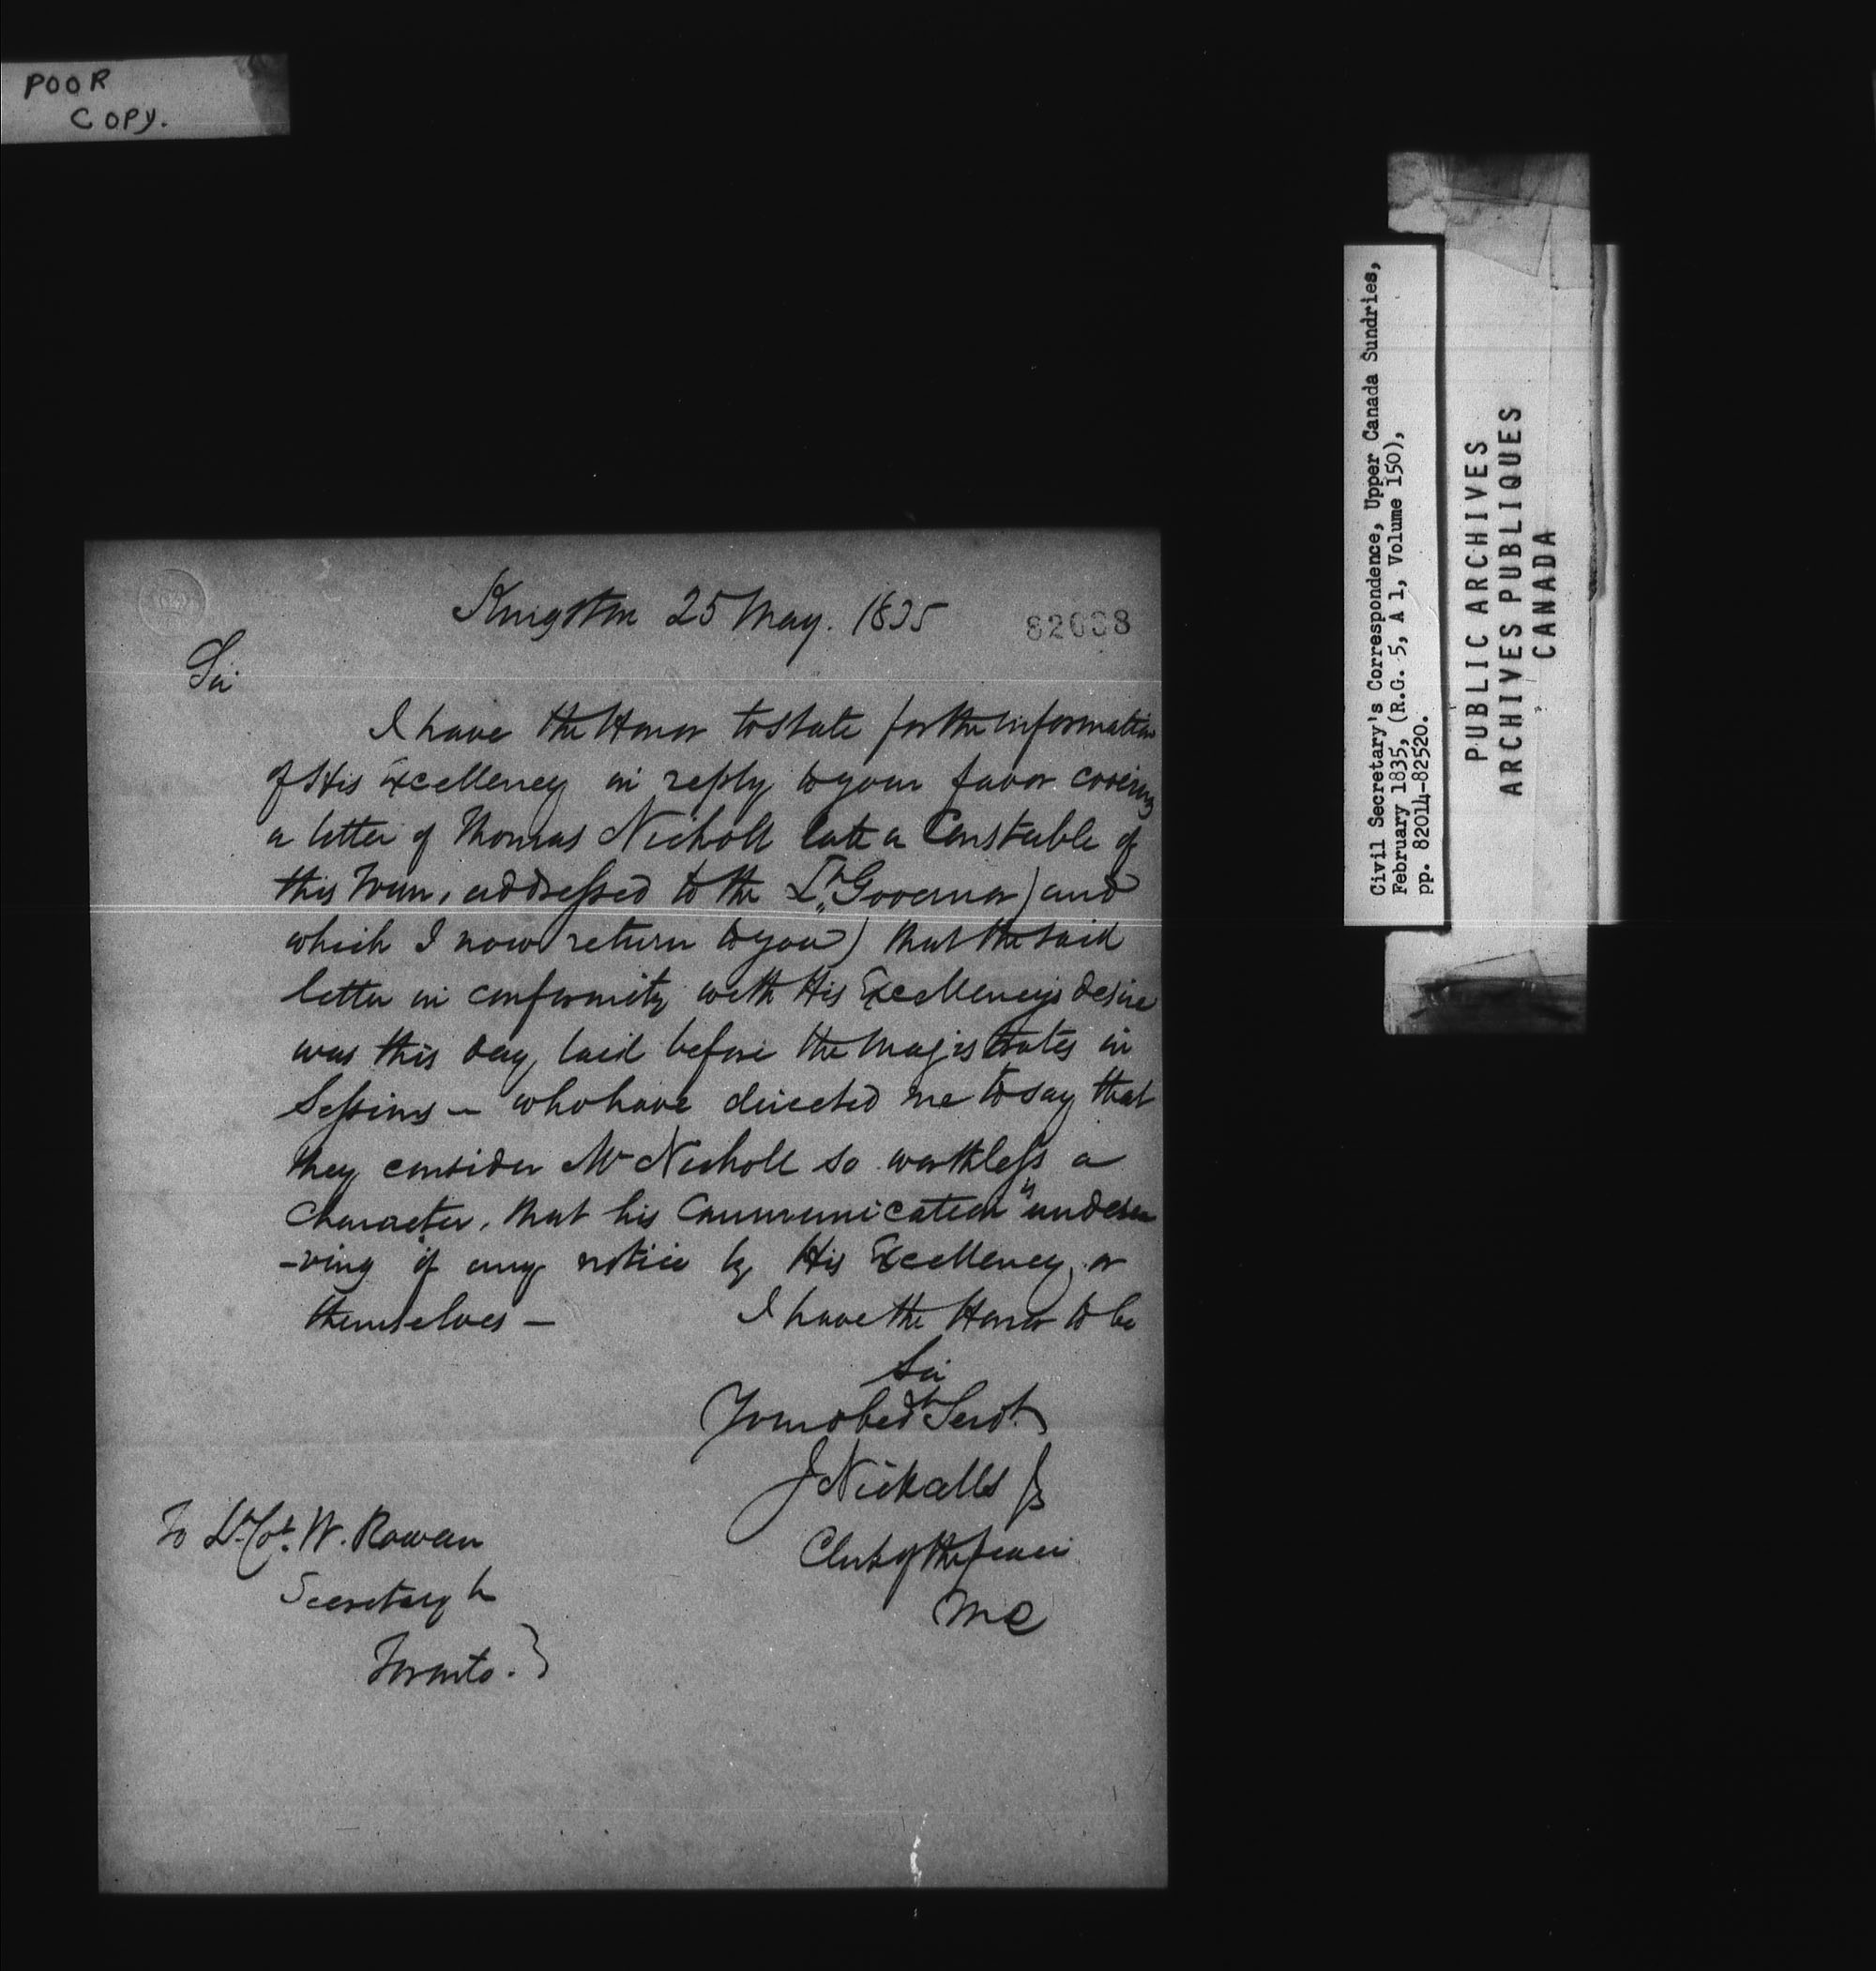 POOR
COPY.
Kingston 25 May. 1835
82038
Sir
I have the Honor to state for the information
of His Excellency in reply to your favor covering
a letter of Thomas Nicholl late a Constable of
this Town, addressed to the Lt. Governor) and
which I now return to you) that the said
letter in conformity with His Excellency's desire
was this day, laid before the Magistrates in
Sessions — who have directed me to say that
they consider Mr Nicholl so worthless a
character, that his Communication is undeser
-ving of any notice by His Excellency, or
themselves —
I have the Honor to be
Sir
Your obedt Servt
J Nickalls Jr
Clerk of the peace
M D
To Lt. Col. W. Rowan
Secretary &c
Toronto. }
Civil Secretary's Correspondence, Upper Canada Sundries,
February 1835, (R.G. 5, A 1, Volume 150),
pp. 82014-82520.
PUBLIC ARCHIVES
ARCHIVES PUBLIQUES
CANADA